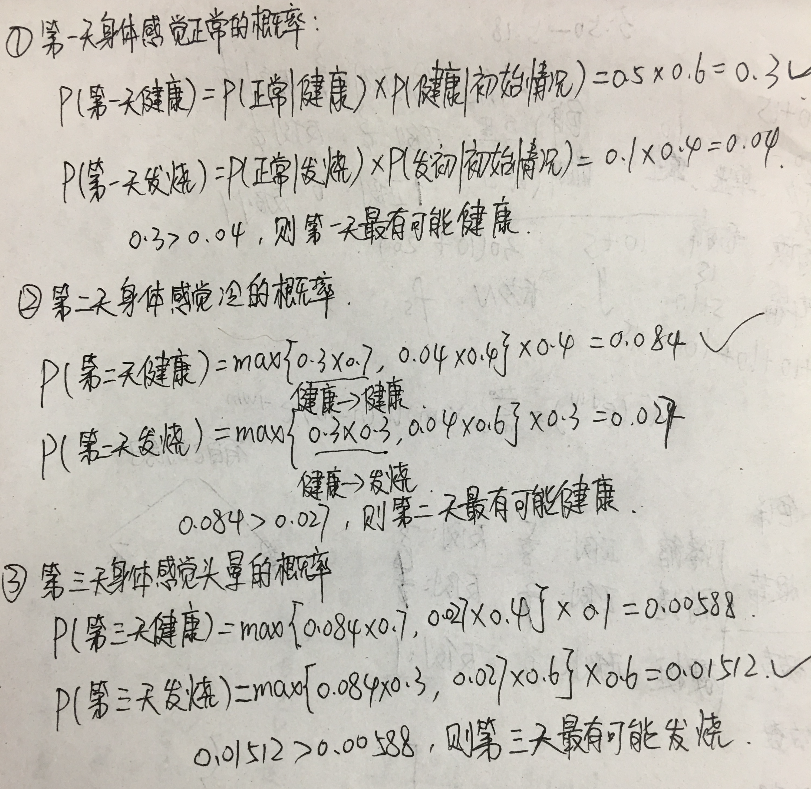 ① 第一天身体感觉正常的概率:
P(第一天健康)=P(正常|健康)×P(健康|初始情况)=0.5×0.6=0.3 ✓
P(第一天发烧)=P(正常|发烧)×P(发初|初始情况)=0.1×0.4=0.04.
0.3>0.04,则第一天最有可能健康.
② 第二天身体感觉冷的概率.
P(第二天健康)=max{0.3×0.7, 0.04×0.4}×0.4=0.084 ✓
健康→健康.
P(第二天发烧)=max{0.3×0.3, 0.04×0.6}×0.3=0.027
健康→发烧
0.084>0.027,则第二天最有可能健康.
③ 第三天身体感觉头晕的概率
P(第三天健康)=max{0.084×0.7, 0.027×0.4}×0.1=0.00588.
P(第三天发烧)=max{0.084×0.3, 0.027×0.6}×0.6=0.01512.✓
0.01512>0.00588,则第三天最有可能发烧.